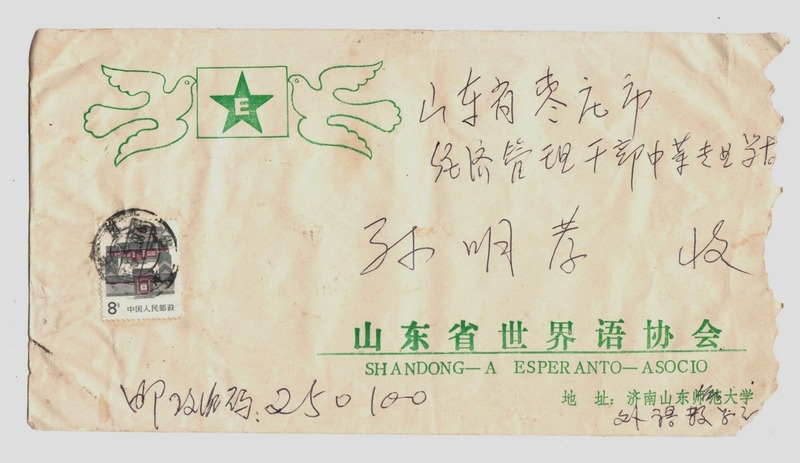 E
山东省枣庄市
经济管理干部中等专业学校
孙明孝 收
8分 中国人民邮政
山东省世界语协会
SHANDONG—A ESPERANTO—ASOCIO
地 址：济南山东师范大学
外语教
邮政编码：250100